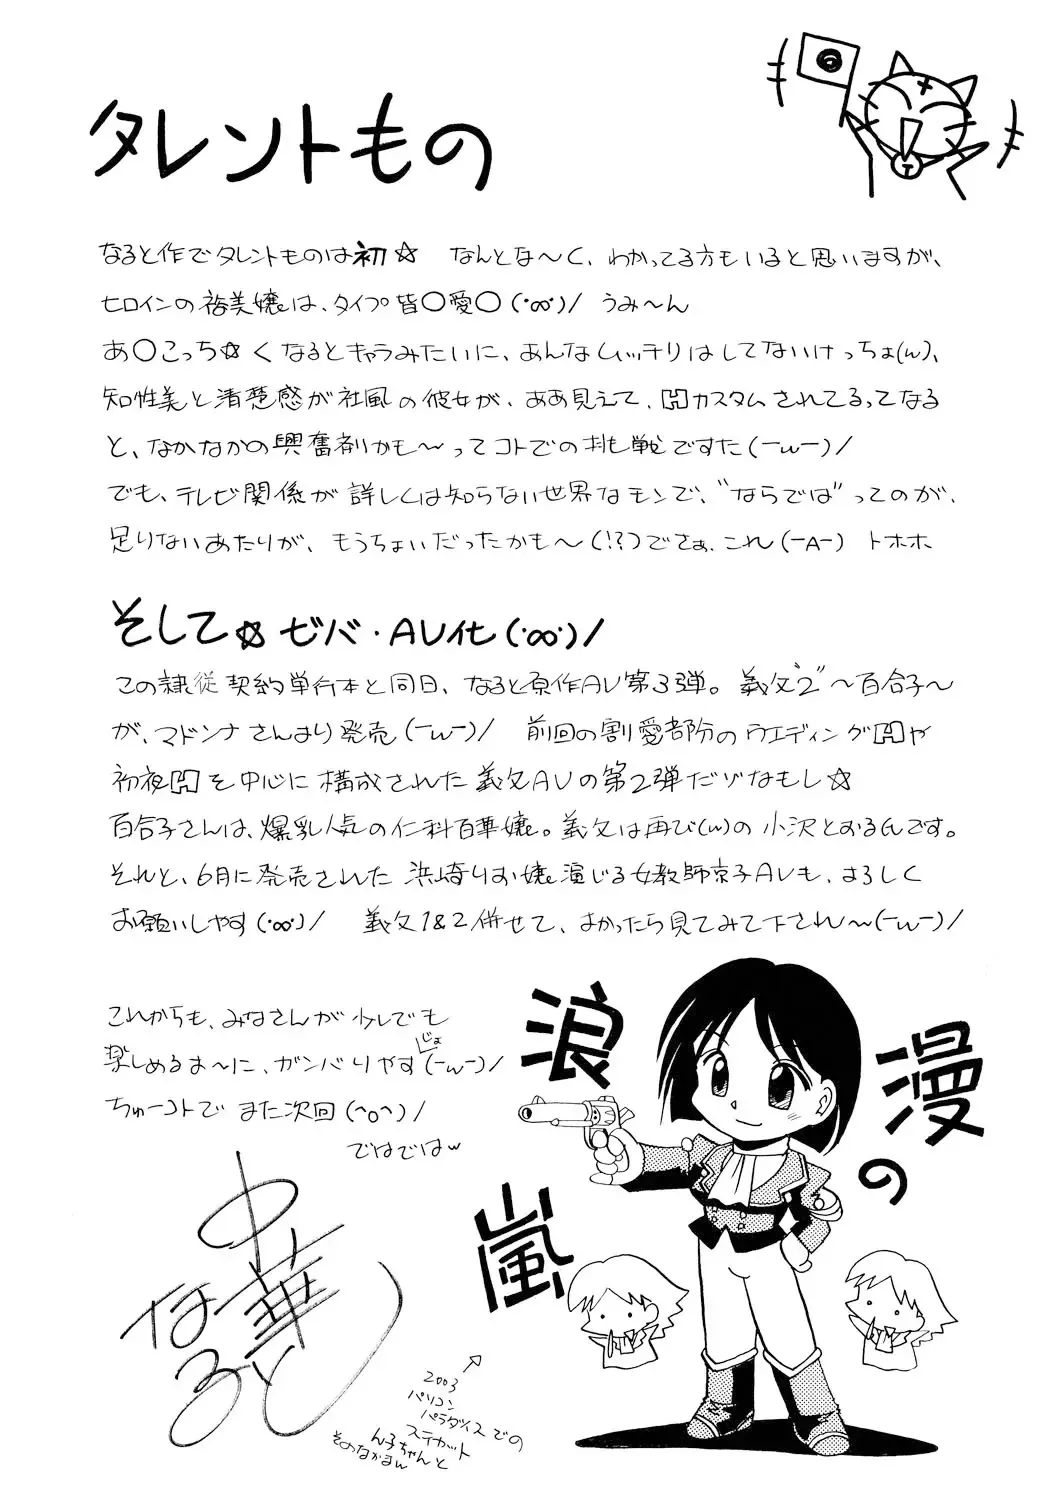 タレントもの
なると作でタレントものは初☆ なんとな〜く、わかってる方もいると思いますが、
ヒロインの裕美嬢は、タイプ皆〇愛〇(･∞･)/ うみ〜ん
あ〇こっち☆くなるとキャラみたいに、あんなムッチリはしてないけっちょ(w)、
知性美と清楚感が社風の彼女が、ああ見えて、Hカスタムされてるってなる
と、なかなかの興奮剤かも〜ってコトでの挑戦ですた(ーwー)/
でも、テレビ関係が詳しくは知らない世界なモンで、"ならでは"ってのが、
足りないあたりが、もうちょいだったかも〜(!?)でさぁ、これ(ーAー) トホホ
そして☆ ビバ・AV化(･∞･)/
この隷従契約単行本と同日、なると原作AV第3弾。義父"2"〜百合子〜
が、マドンナさんより発売(ーwー)/ 前回の割愛部分のウエディングHや
初夜Hを中心に構成された義父AVの第2弾だゾなもし☆
百合子さんは、爆乳人気の仁科百華嬢。義父は再び(w)の小沢とおるんです。
それと、6月に発売された浜崎りお嬢演じる女教師京子AVも、よろしく
お願いしやす(･∞･)/ 義父1&2併せて、よかったら見てみて下され〜(ーwー)/
これからも、みなさんが少しでも
楽しめるよ〜に、ガンバりやす(ーwー)/
じょ
ちゅーコトで また次回(^o^)/
ではではw
浪漫の嵐
中華なると
2003
パソコン
パラダイスでの
ステカット
ん子ちゃんと
そのなかまw